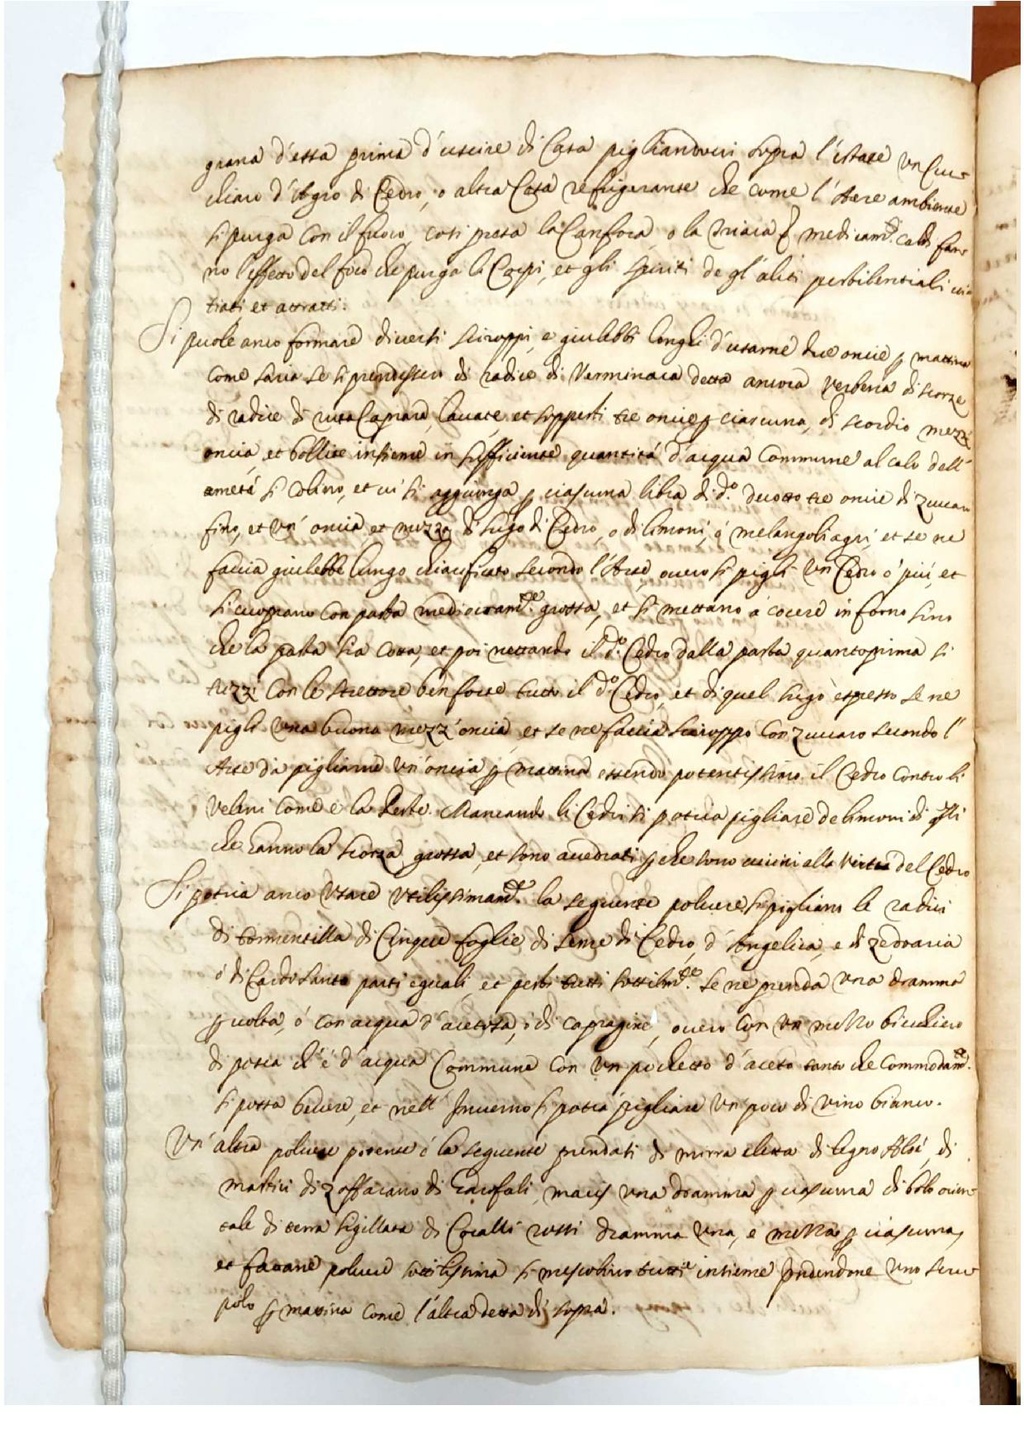 grana d'essa prima d'uscire di Casa pigliandovi sopra l'istate un Cuc-
chiaro d'Agro di Cedro, o altra Cosa refrigerante che come l'Aere ambiente
si purga con il fuoco, così presa la Canfora, o la triaca medicamti. caldi fan-
no l'effetto del foco che purga li Corpi, et gli spiriti de gl'aliti pestilentiali
tirati et attratti.
Si puole anco formare diversi siroppi, e giulebbi longhi d'usarne due oncie p mattina
come saria se si prendesser di radice di Verminaca detta ancora Verbena di scorze
di radice di ruta Capraria, lavate et soppesti tre oncie p ciascuna, di scordio mezz'
oncia, et bollite insieme in sufficiente quantità d'acqua Commune al calo dell'
ametà si colino, et vi si aggiunga p ciascuna libra di do. decotto tre oncie di zuccaro
fino, et un'oncia et mezza di sugo di Cedro, o di limoni, ò melangoli agri, et se ne
faccia giulebbe lungo chiarificato secondo l'Arte, overo si pigli un Cedro ò più, et
si cuoprano con pasta mediocramte. grossa, et si mettano à cocere in forno sino
che la pasta sia cotta, et poi nettando il do. Cedro dalla pasta quantoprima si
strizzi con le strettore ben forte tutto il do. Cedro, et di quel sugo espresso se ne
pigli una buona mezz'oncia, et se ne faccia sciroppo con zuccaro secondo l'
Arte da pigliarne un'oncia p mattina essendo potentissimo il Cedro contro li
veleni come è la Peste. Mancando li Cedri si potria pigliare de limoni di qlli
che hanno la scorza grossa, et sono acedrati p che sono vicini alla virtù del Cedro
Si potria anco usare utilissimamte. la seguente polvere si pigliano le radici
di tormentilla di Cinque foglie, di seme di Cedro, d'Angelica, e di zedoaria
ò di Cardo santo parti eguali, et pesti tutti sottilmte. se ne prenda una dramma
p volta, ò con acqua d'acetosa, ò di capragine, overo con un mezzo bicchiero
di posca ch'è d'acqua Commune con un pochetto d'aceto tanto che Commodamte.
si possa bevere, et nell'Inverno si potrà pigliare un poco di vino bianco.
Un'altra polvere potente è la seguente prendasi di mirra eletta di legno Aloè, di
mastici di zaffarano di Garofali, macis una dramma p ciascuna di bolo orien-
tale di terra sigillata di Coralli rossi dramma una, e mezza p ciascuna,
et fattane polvere sottilissima si mescolino tutti insieme prendendone uno scru-
polo p mattina come l'altra detta di sopra.